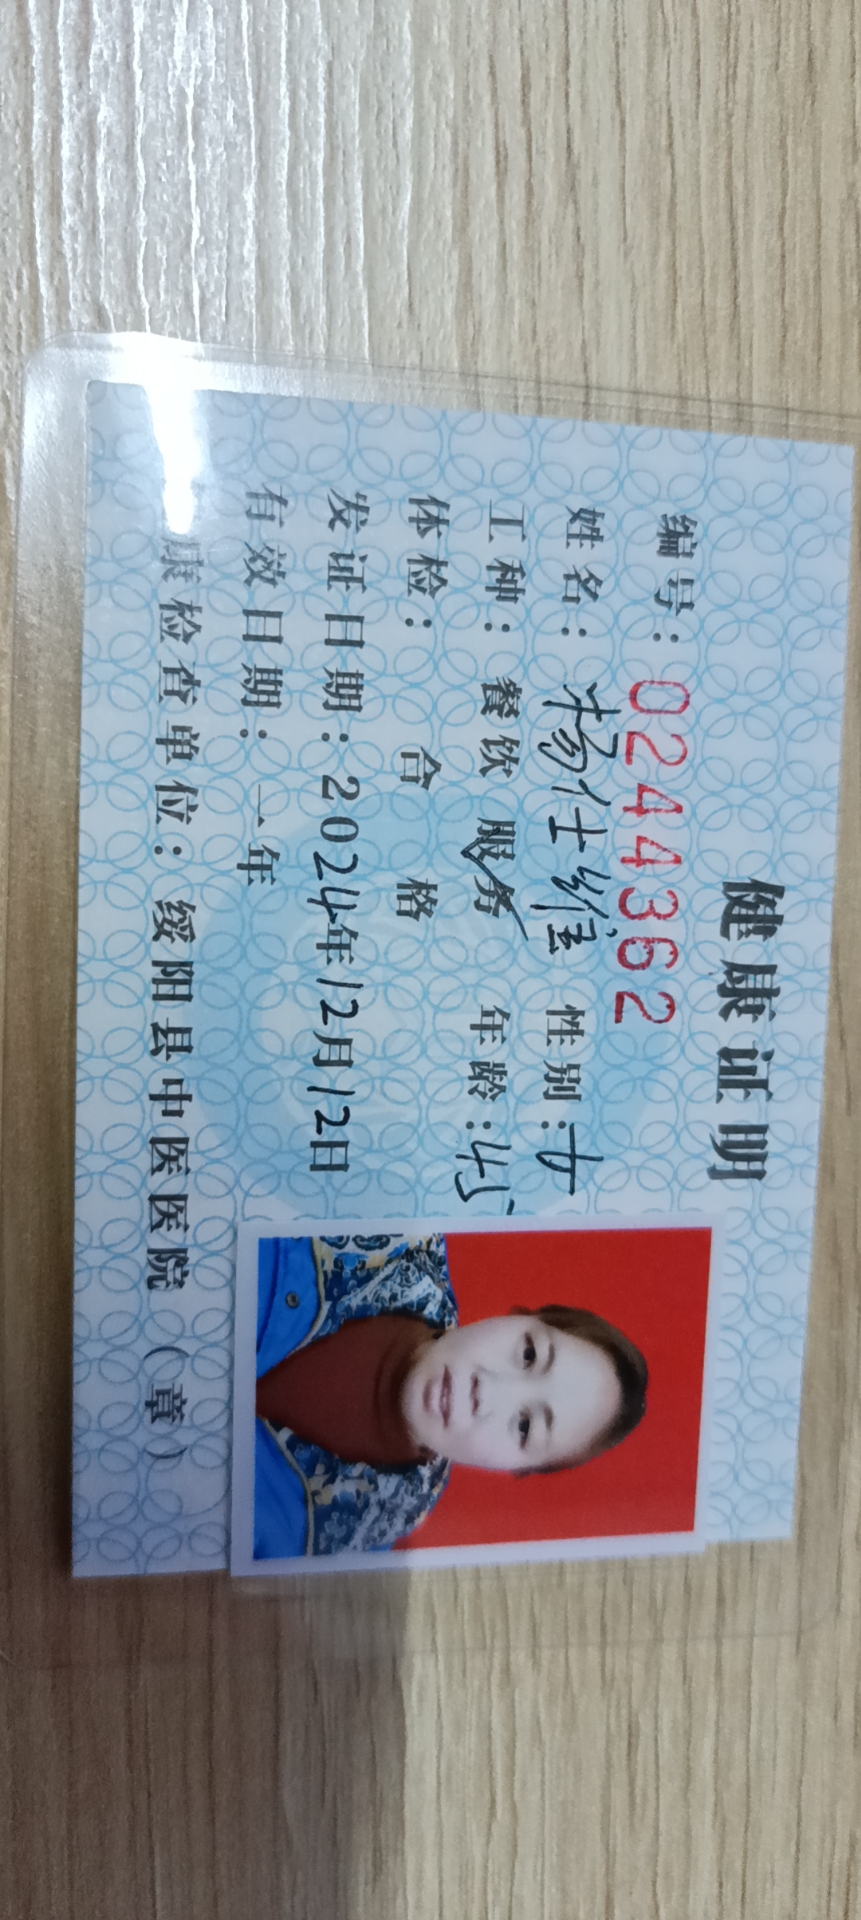 健康证明
编号：0244362
姓名：杨仕维 性别：女
工种：餐饮 服务 年龄：45
体检： 合 格
发证日期：2024年12月12日
有效日期：一年
康检查单位：绥阳县中医医院（章）